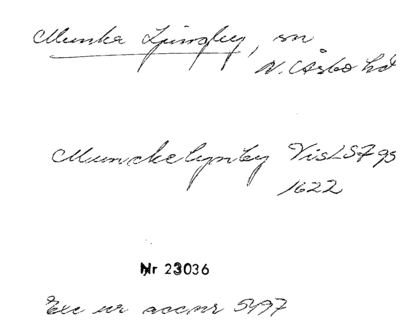 Munka Ljungby, sn
N. Åsbo hd
Munckelynby VisLSF 95
1622
Nr 23036
Exc ur accnr 5497